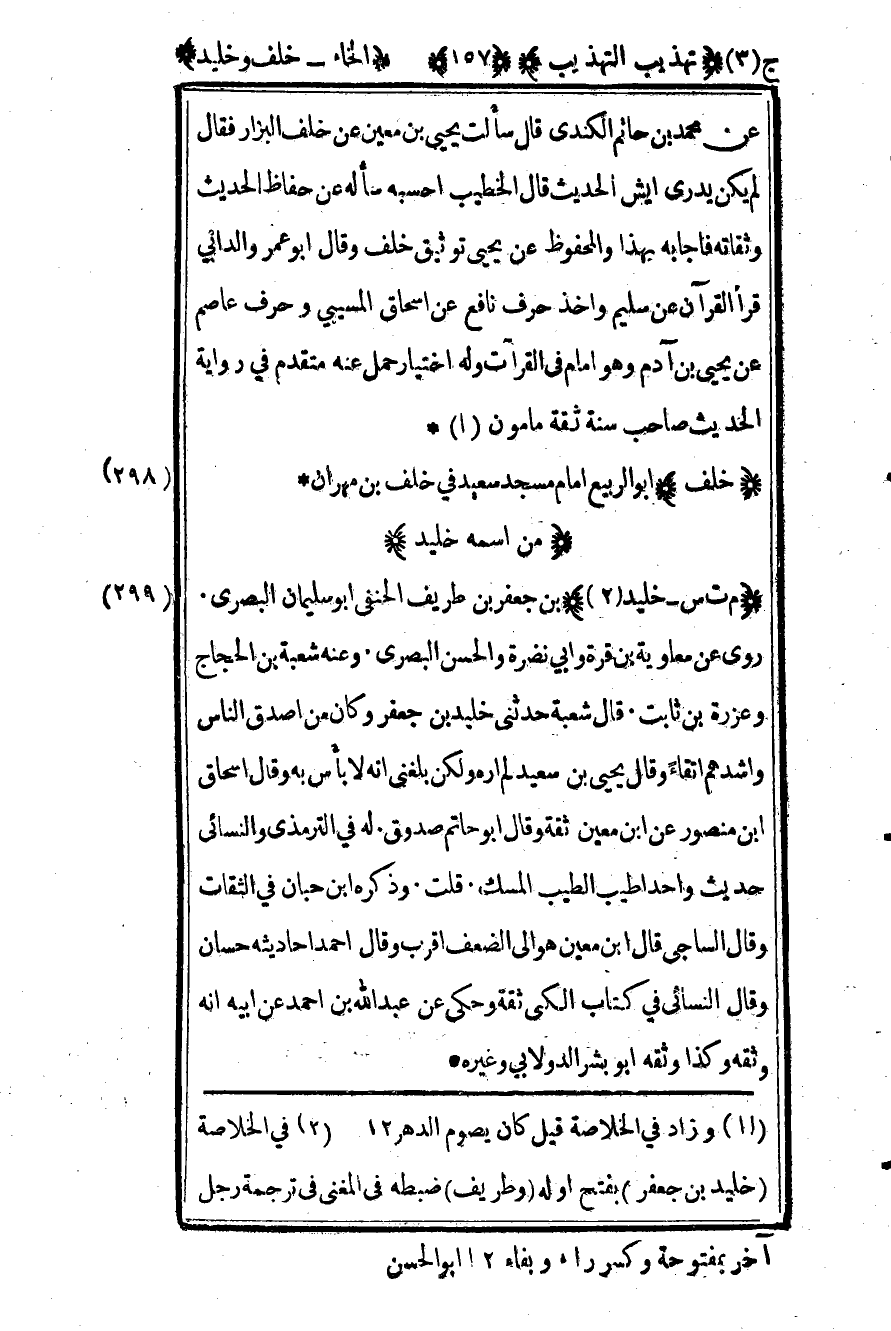 ج (٣) ﴿ تهذيب التهذيب ﴾ ﴿١٥٧﴾ ﴿ الخاء – خلف وخليد ﴾
عن محمد بن حاتم الكندى قال سألت يحيى بن معين عن خلف البزار فقال
لم يكن يدرى ايش الحديث قال الخطيب احسبه سأله عن حفاظ الحديث
وثقاته فاجابه بهذا والمحفوظ عن يحيى توثيق خلف وقال ابو عمر والداني
قرأ القرآن عن سليم واخذ حرف نافع عن اسحاق المسيبي وحرف عاصم
عن يحيى بن آدم وهو امام فى القرآت وله اختيار حمل عنه متقدم في رواية
الحديث صاحب سنة ثقة مامون (١) *
﴿ خلف ﴾ ابو الربيع امام مسجد سعيد في خلف بن مهران * (٢٩٨)
﴿ من اسمه خليد ﴾
﴿ م ت س – خليد (٢) ﴾ بن جعفر بن طريف الحنفى ابو سليمان البصرى . (٢٩٩)
روى عن معاوية بن قرة وابي نضرة والحسن البصرى . وعنه شعبة بن الحجاج
وعزرة بن ثابت . قال شعبة حدثنى خليد بن جعفر وكان من اصدق الناس
واشدهم اتقاءً وقال يحيى بن سعيد لم اره ولكن بلغنى انه لا بأس به وقال اسحاق
ابن منصور عن ابن معين ثقة وقال ابو حاتم صدوق . له في الترمذى والنسائى
حديث واحد اطيب الطيب المسك . قلت . وذكره ابن حبان في الثقات
وقال الساجى قال ابن معين هو الى الضعف اقرب وقال احمد احاديثه حسان
وقال النسائى في كتاب الكنى ثقة وحكى عن عبدالله بن احمد عن ابيه انه
وثقه وكذا وثقه ابو بشر الدولابي وغيره *
(١) وزاد في الخلاصة قيل كان يصوم الدهر ١٢ (٢) في الخلاصة
(خليد بن جعفر) بفتح اوله (وطريف) ضبطه فى المغنى فى ترجمة رجل
آخر بمفتوحة وكسر راء وبفاء ١٢ ابو الحسن